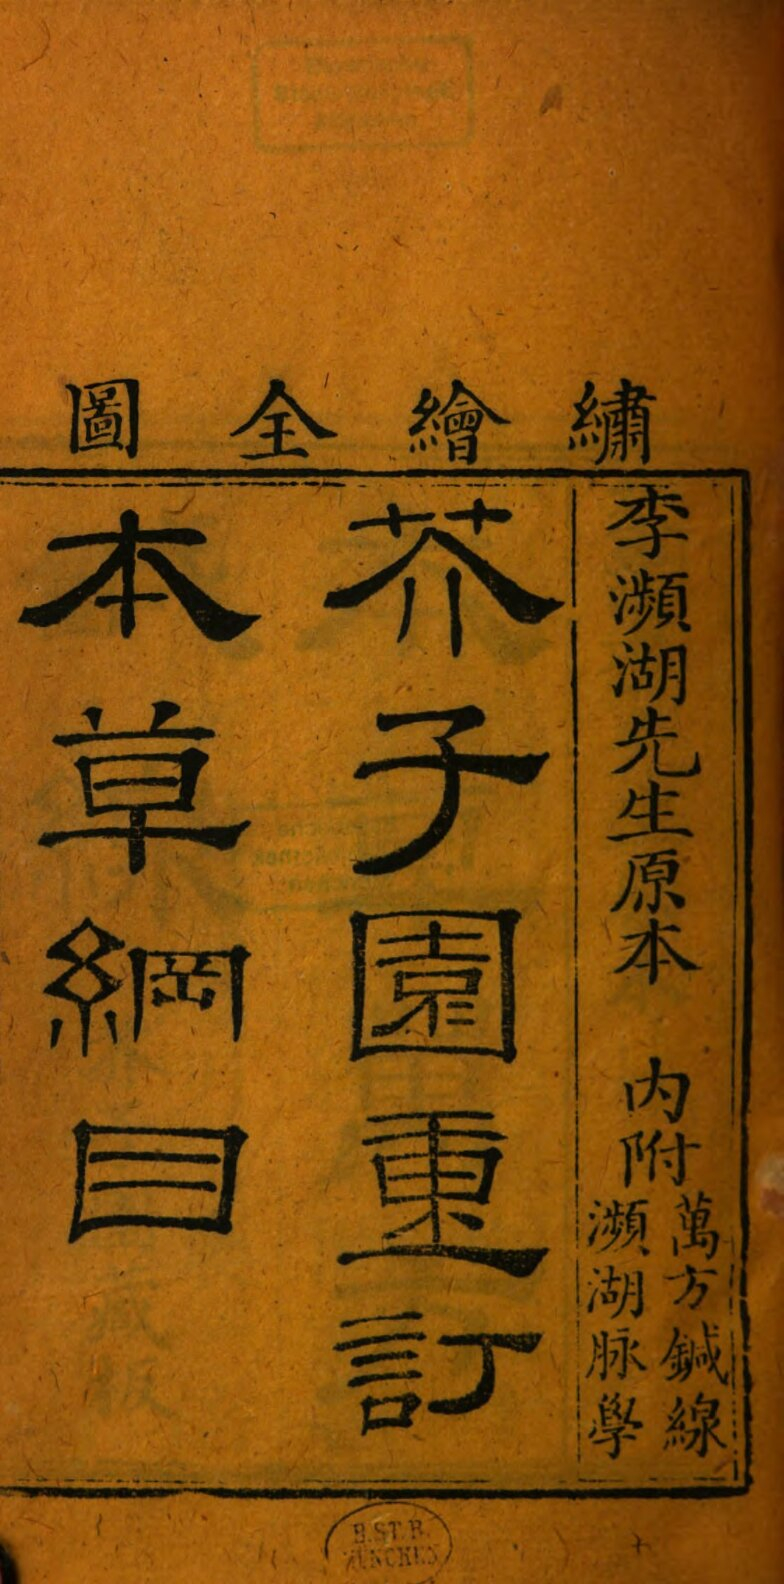 繡繪全圖
李瀕湖先生原本 內附
萬方鍼線
瀕湖脉學
芥子園重訂
本草綱目
B.ST.B.
MÜNCHEN